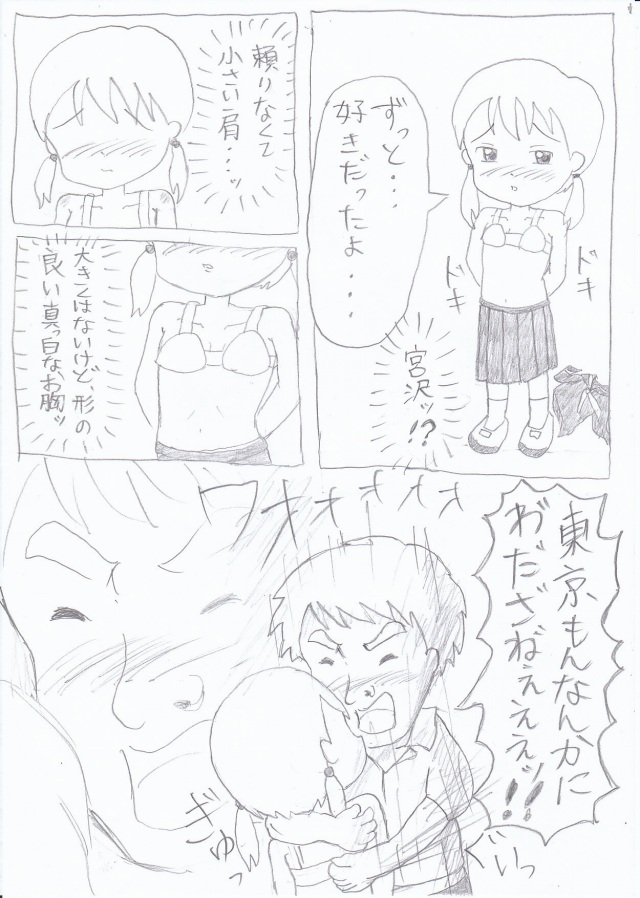 ずっと・・・
好きだったよ・・・
ドキ
ドキ
宮沢ッ!?
頼りなくて
小さい肩・・・ッ
大きくはないけど、形の
良い真っ白なお胸ッ
ワオオオオオ
東京もんなんかに
わ゛だざねぇえぇッ!!
ぎゅっ
ぐいっ